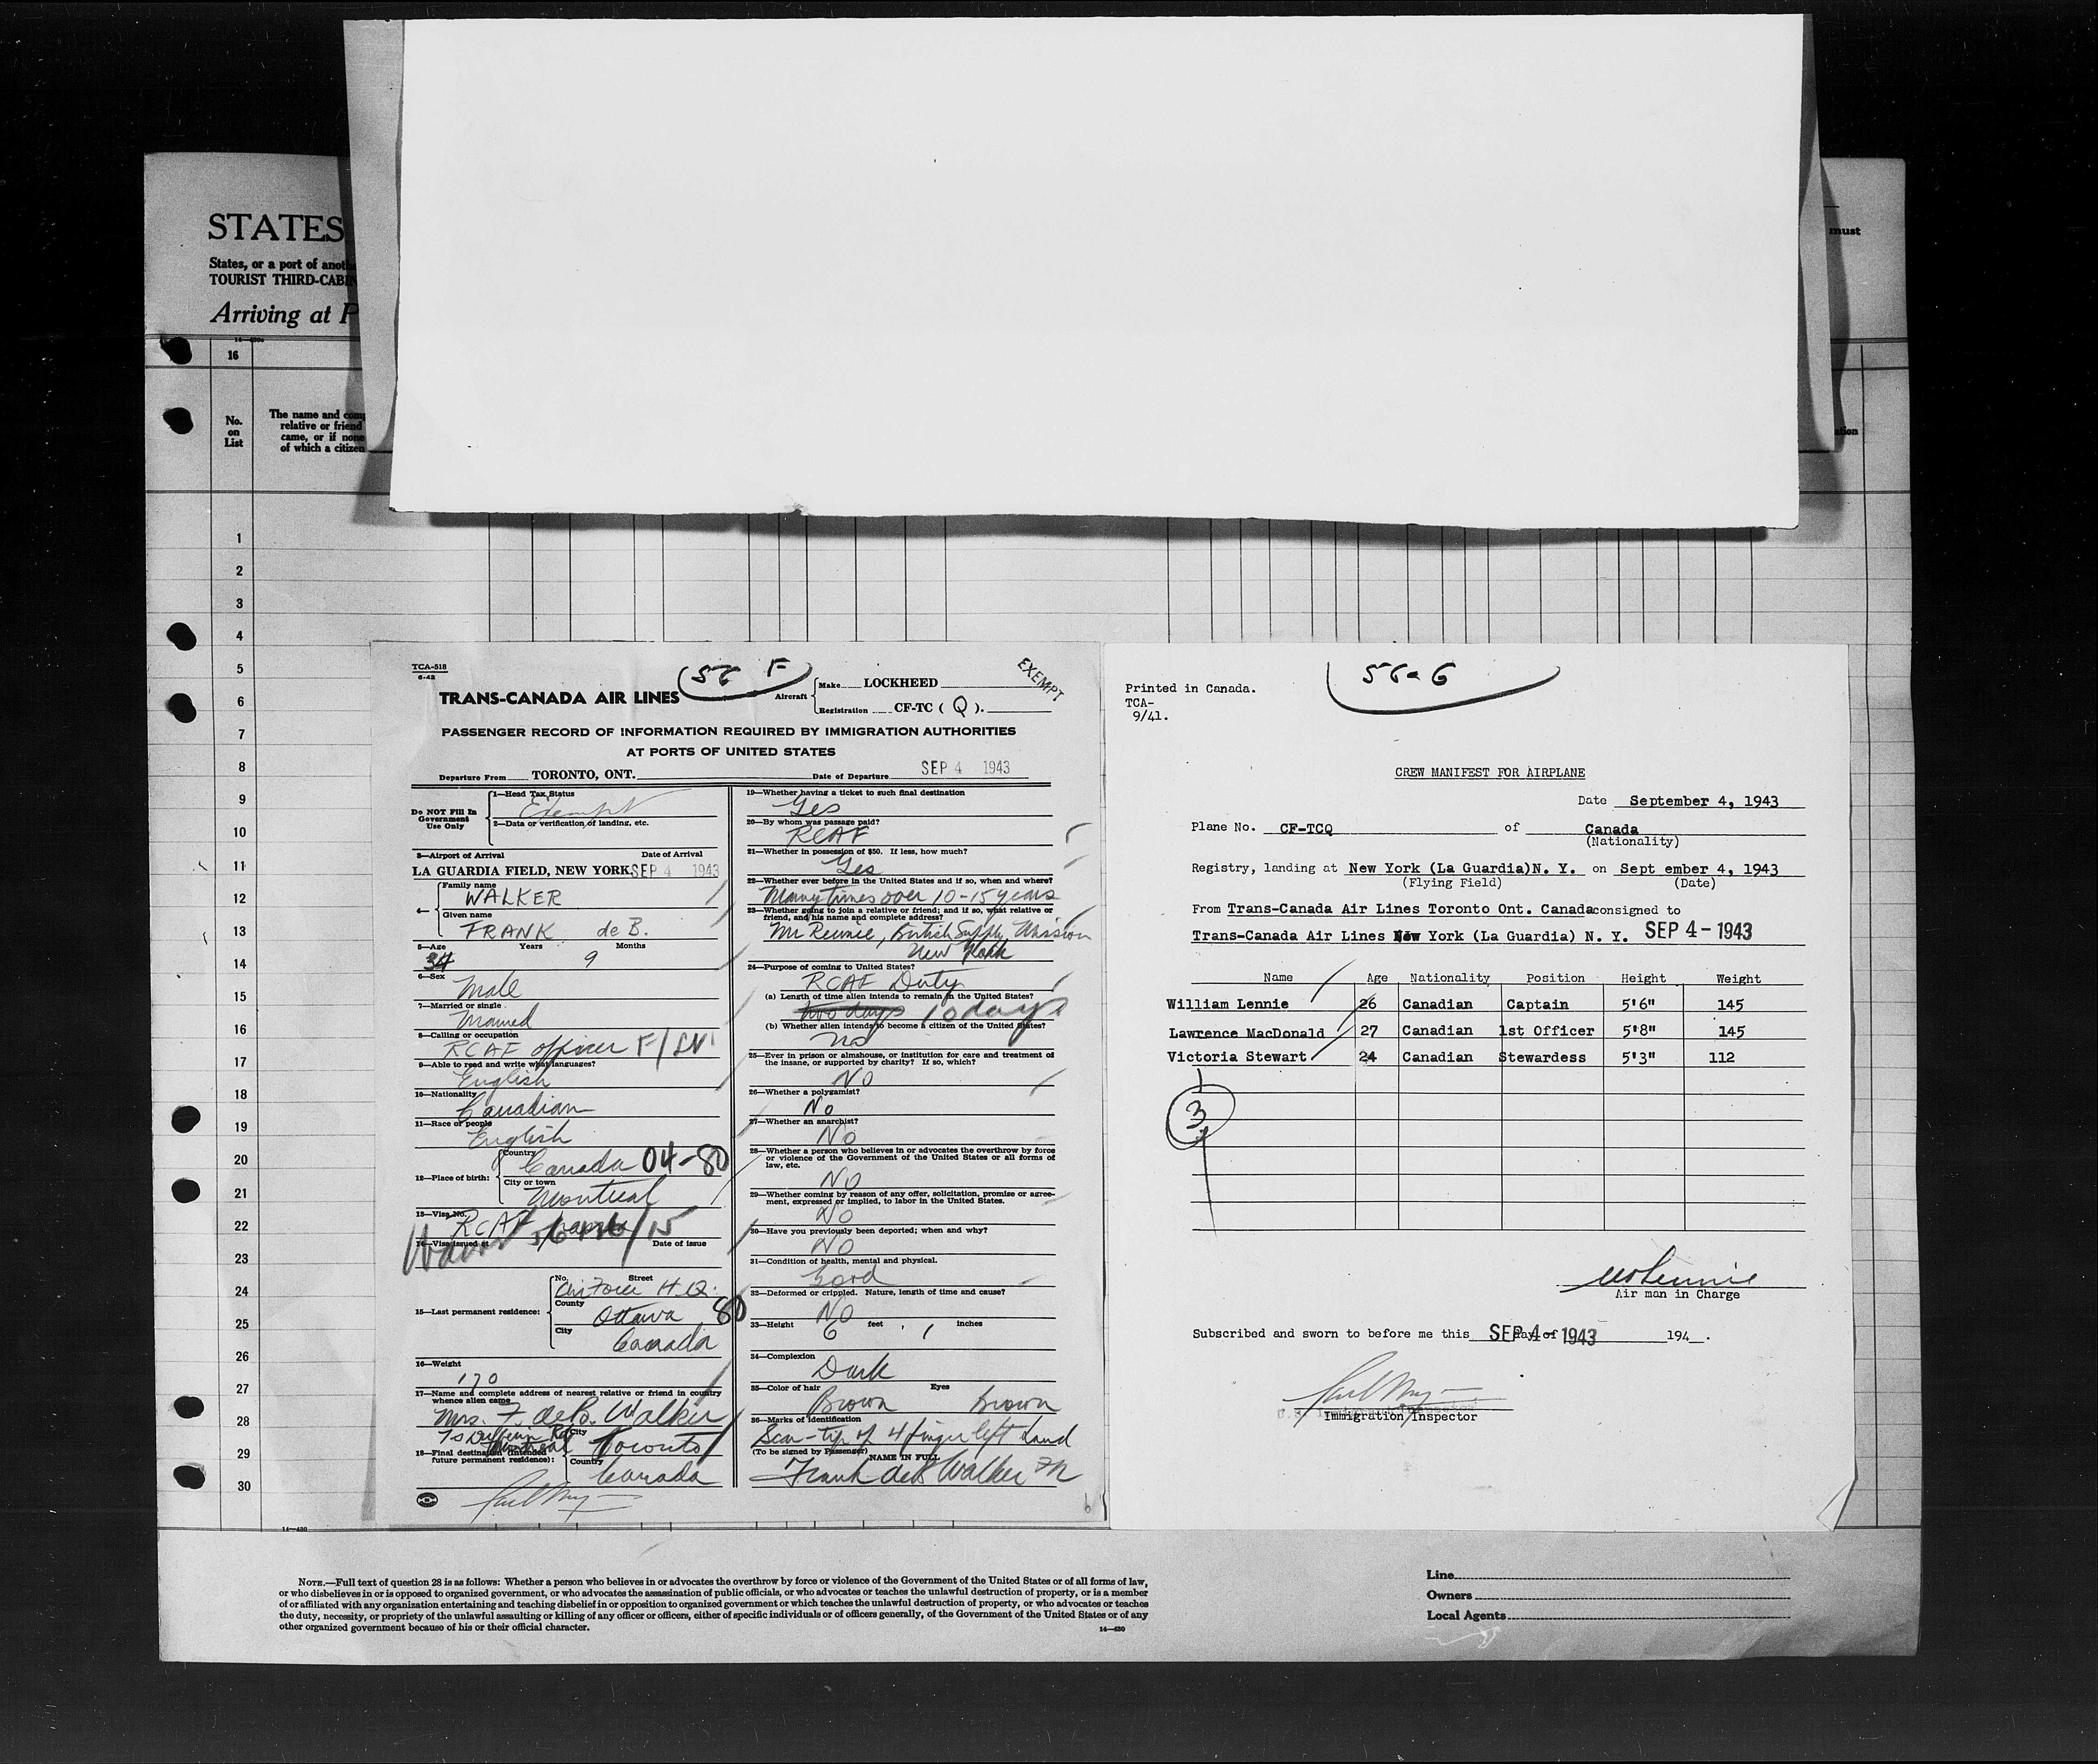 STATES
States, or a port of anot
TOURIST THIRD-CABIN
Arriving at P
must
16
No.
on
List
The name and comp
relative or friend
came, or if none
of which a citizen
ation
1
2
3
4
5
6
7
8
9
10
11
12
13
14
15
16
17
18
19
20
21
22
23
24
25
26
27
28
29
30
TCA-518
6-42
56 F
EXEMPT
TRANS-CANADA AIR LINES
Aircraft
Make LOCKHEED
Registration CF-TC ( Q ).
PASSENGER RECORD OF INFORMATION REQUIRED BY IMMIGRATION AUTHORITIES
AT PORTS OF UNITED STATES
Departure From TORONTO, ONT. Date of Departure SEP 4 1943
Do NOT Fill In
Government
Use Only
1—Head Tax Status
Exempt
2—Data or verification of landing, etc.
3—Airport of Arrival Date of Arrival
LA GUARDIA FIELD, NEW YORK SEP 4 1943
4—
Family name
WALKER
Given name
FRANK de B.
5—Age Years Months
34 9
6—Sex
Male
7—Married or single
Married
8—Calling or occupation
RCAF officer F/Lt
9—Able to read and write what languages?
English
10—Nationality
Canadian
11—Race or people
English
12—Place of birth:
Country
Canada 04-80
City or town
Montreal
13—Visa No.
RCAF
14—Visa issued at Date of issue
15—Last permanent residence:
No. Street
Air Force H.Q.
County
Ottawa 80
City
Canada
16—Weight
170
17—Name and complete address of nearest relative or friend in country
whence alien came
Mrs. F. deB. Walker
Dufferin Rd
Montreal
18—Final destination (Intended
future permanent residence):
City
Toronto
Country
Canada
19—Whether having a ticket to such final destination
Yes
20—By whom was passage paid?
RCAF
21—Whether in possession of $50. If less, how much?
Yes
22—Whether ever before in the United States and if so, when and where?
Many times over 10-15 years
23—Whether going to join a relative or friend; and if so, what relative or
friend, and his name and complete address?
Mr Rennie, British Supply Mission
New York
24—Purpose of coming to United States?
RCAF Duty
(a) Length of time alien intends to remain in the United States?
two days 10 days
(b) Whether alien intends to become a citizen of the United States?
no
25—Ever in prison or almshouse, or institution for care and treatment of
the insane, or supported by charity? If so, which?
No
26—Whether a polygamist?
No
27—Whether an anarchist?
No
28—Whether a person who believes in or advocates the overthrow by force
or violence of the Government of the United States or all forms of
law, etc.
No
29—Whether coming by reason of any offer, solicitation, promise or agree-
ment, expressed or implied, to labor in the United States.
No
30—Have you previously been deported; when and why?
No
31—Condition of health, mental and physical.
Good
32—Deformed or crippled. Nature, length of time and cause?
No
33—Height 6 feet, 1 inches
34—Complexion
Dark
35—Color of hair Eyes
Brown brown
36—Marks of identification
Scar-tip of 4 finger left hand
(To be signed by Passenger)
NAME IN FULL
Frank deB Walker
Printed in Canada.
TCA-
9/41.
56-G
CREW MANIFEST FOR AIRPLANE
Date September 4, 1943
Plane No. CF-TCQ of Canada
(Nationality)
Registry, landing at New York (La Guardia)N. Y. on Sept ember 4, 1943
(Flying Field) (Date)
From Trans-Canada Air Lines Toronto Ont. Canadaconsigned to
Trans-Canada Air Lines New York (La Guardia) N. Y. SEP 4-1943
Name Age Nationality Position Height Weight
William Lennie 26 Canadian Captain 5'6" 145
Lawrence MacDonald 27 Canadian 1st Officer 5'8" 145
Victoria Stewart 24 Canadian Stewardess 5'3" 112
3
Air man in Charge
Subscribed and sworn to before me this day of SEP 4-1943 194 .
Immigration Inspector
14—430
NOTE.—Full text of question 28 is as follows: Whether a person who believes in or advocates the overthrow by force or violence of the Government of the United States or of all forms of law,
or who disbelieves in or is opposed to organized government, or who advocates the assassination of public officials, or who advocates or teaches the unlawful destruction of property, or is a member
of or affiliated with any organization entertaining and teaching disbelief in or opposition to organized government or which teaches the unlawful destruction of property, or who advocates or teaches
the duty, necessity, or propriety of the unlawful assaulting or killing of any officer or officers, either of specific individuals or of officers generally, of the Government of the United States or of any
other organized government because of his or their official character.
14—430
Line
Owners
Local Agents